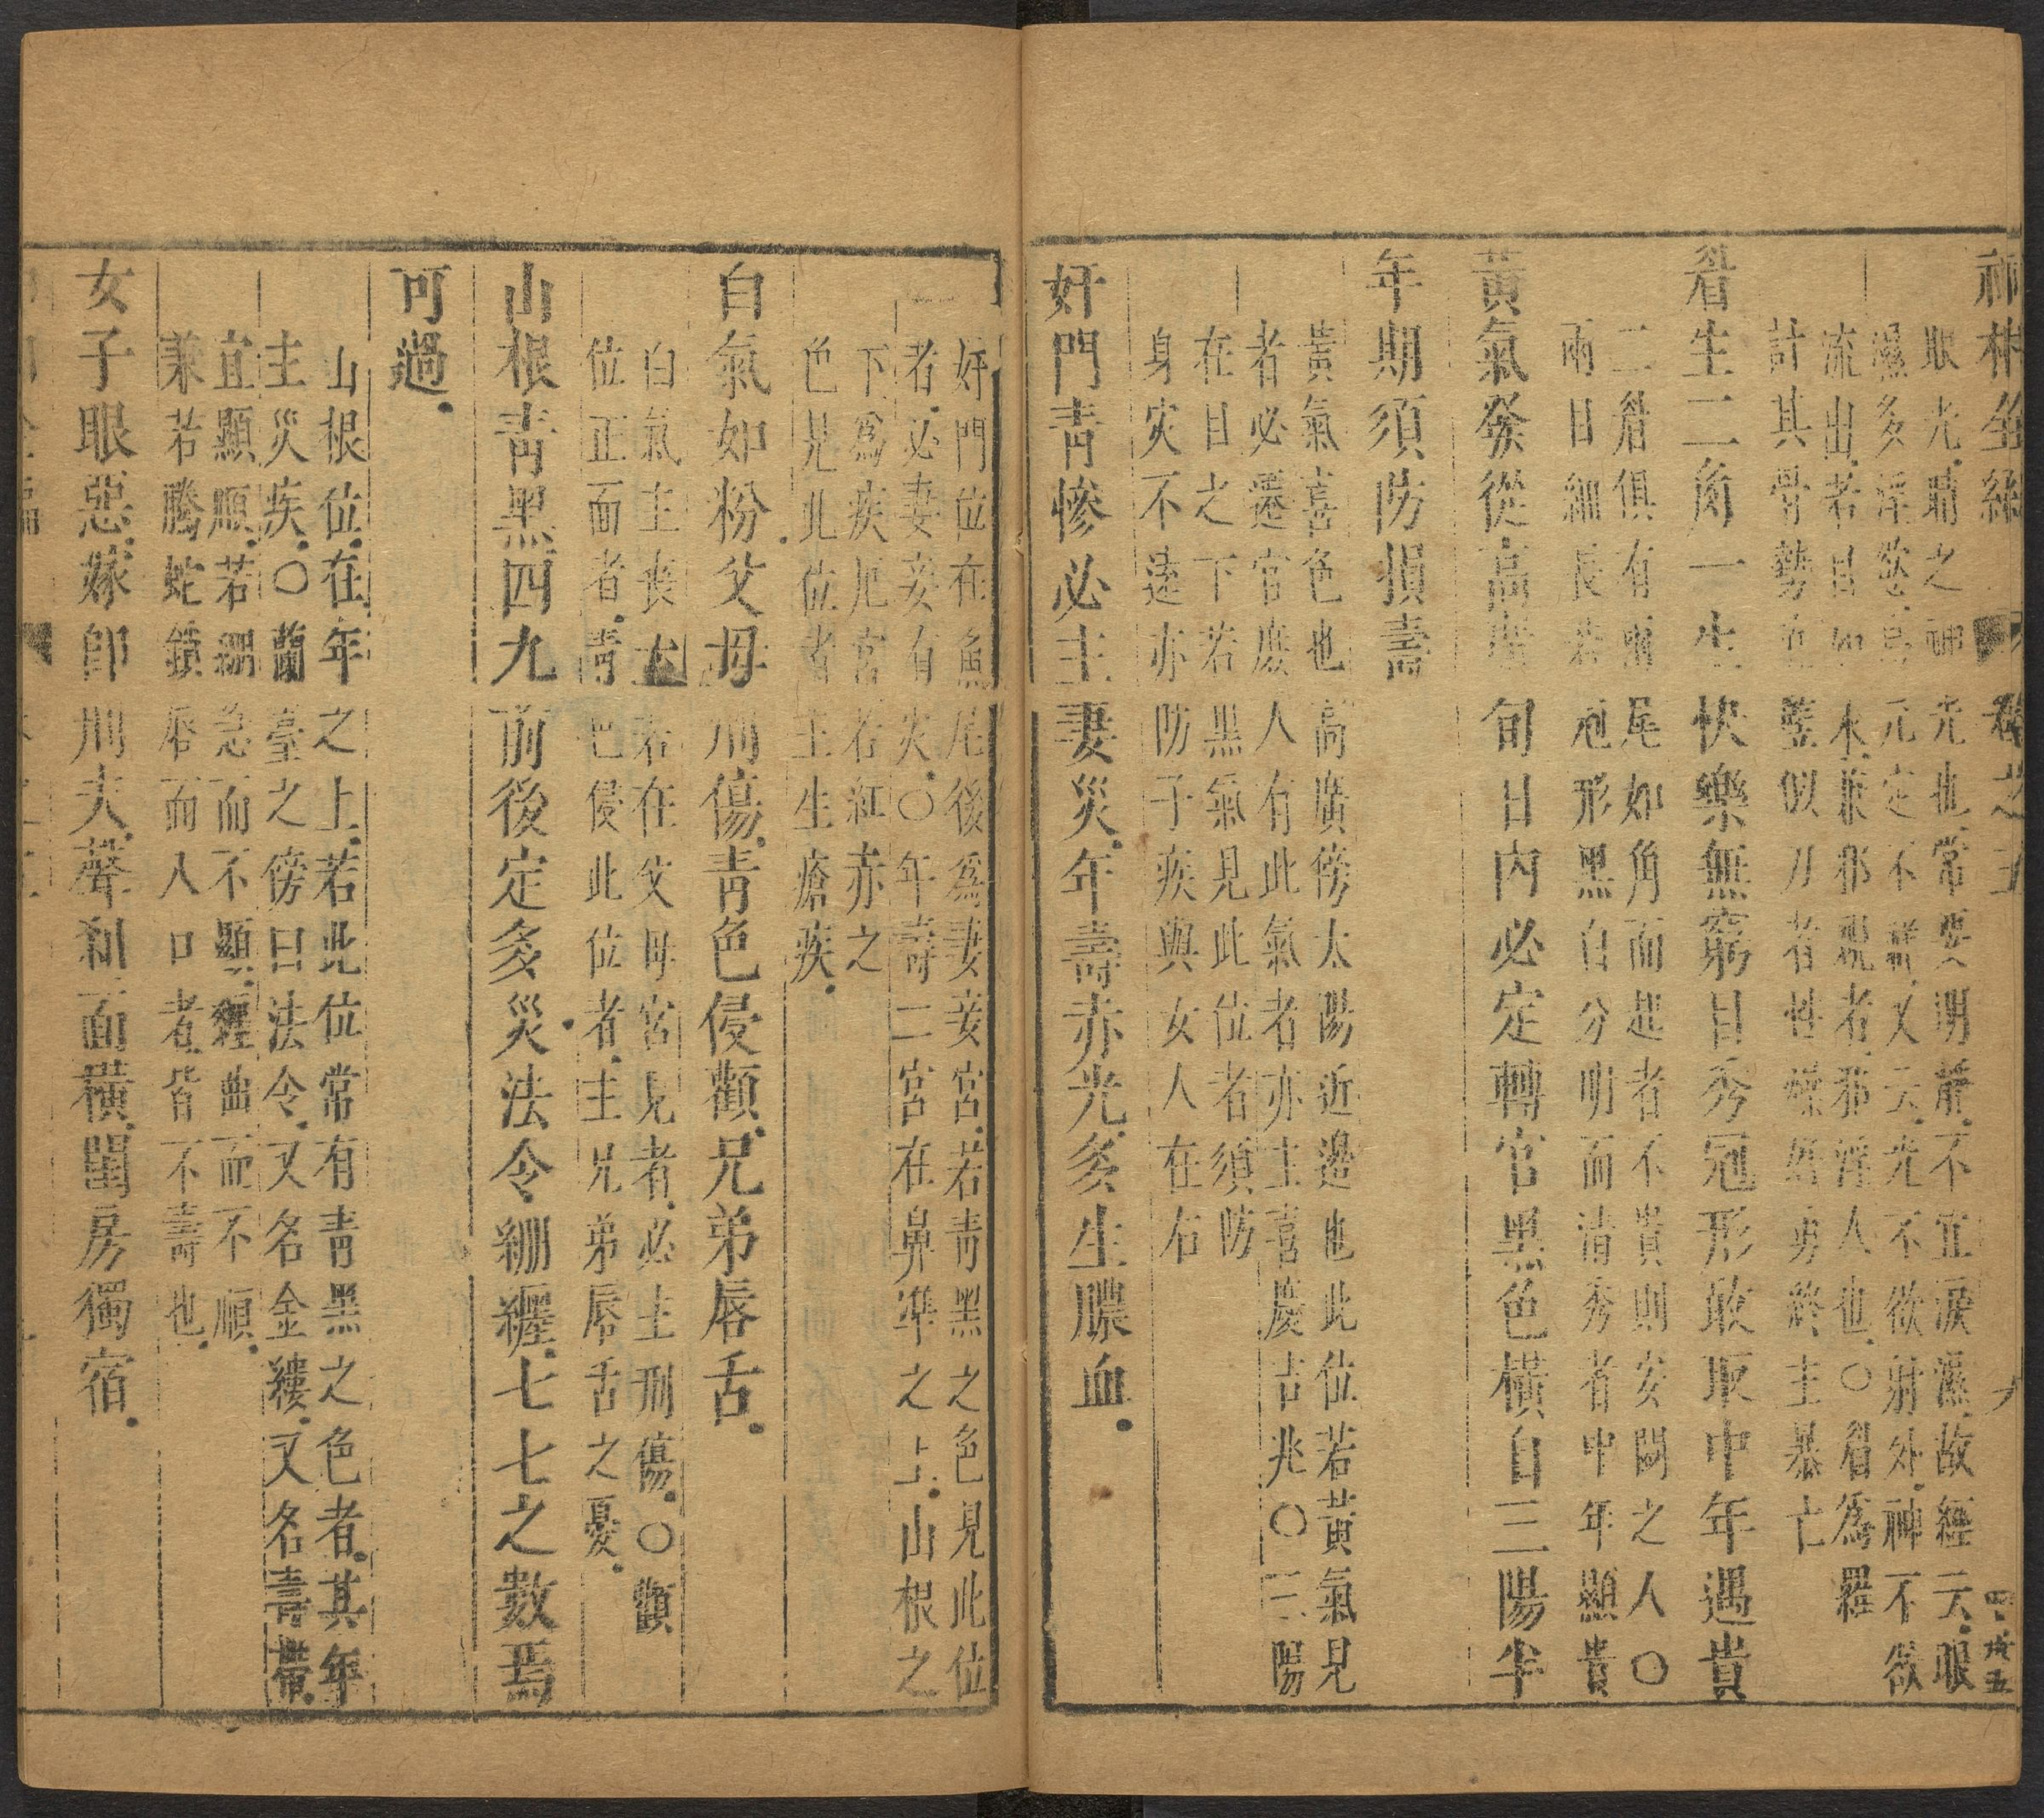 神相全編 卷之五 九
眼光睛之神光也常要明淨不宜淚濕故經云眼
濕多淫慾烏元定不祥又云光不欲射外神不欲
流出若目如水兼邪視者邪淫人也〇眉爲羅
計其骨勢直豎似刀者性燥居勇終主暴亡
眉生二角一生快樂無窮目秀冠形敢取中年遇貴
二眉俱有兩尾如角而起者不貴則安閑之人〇
兩目細長若冠形黑白分明而清秀者中年顯貴
黃氣發從高廣旬日內必定轉官黑色橫自三陽半
年期須防損壽
黃氣喜色也高廣傍太陽近邊也此位若黃氣見
者必遷官庶人有此氣者亦主喜慶吉兆〇三陽
在目之下若黑氣見此位者須防
身災不逵亦防子疾與女人在右
奸門靑慘必主妻災年壽赤光多生膿血
奸門位在魚尾後爲妻妾宮若靑黑之色見此位
者必妻妾有災〇年壽二宮在鼻準之上山根之
下爲疾厄宮若紅赤之
色見此位者主生瘡疾
白氣如粉父母刑傷靑色侵顴兄弟唇舌
白氣主喪亡若在父母宮見者必主刑傷〇顴
位正面者靑色侵此位者主兄弟唇舌之憂
山根靑黑四九前後定多災法令繃纒七七之數焉
可過
山根位在年之上若此位常有靑黑之色者其年
主災疾〇蘭臺之傍曰法令又名金縷又名壽帶
宜顯順若繃急而不顯纒曲而不順
兼若騰蛇鎖唇而入口者皆不壽也
女子眼惡嫁卽刑夫聲剎面橫閨房獨宿